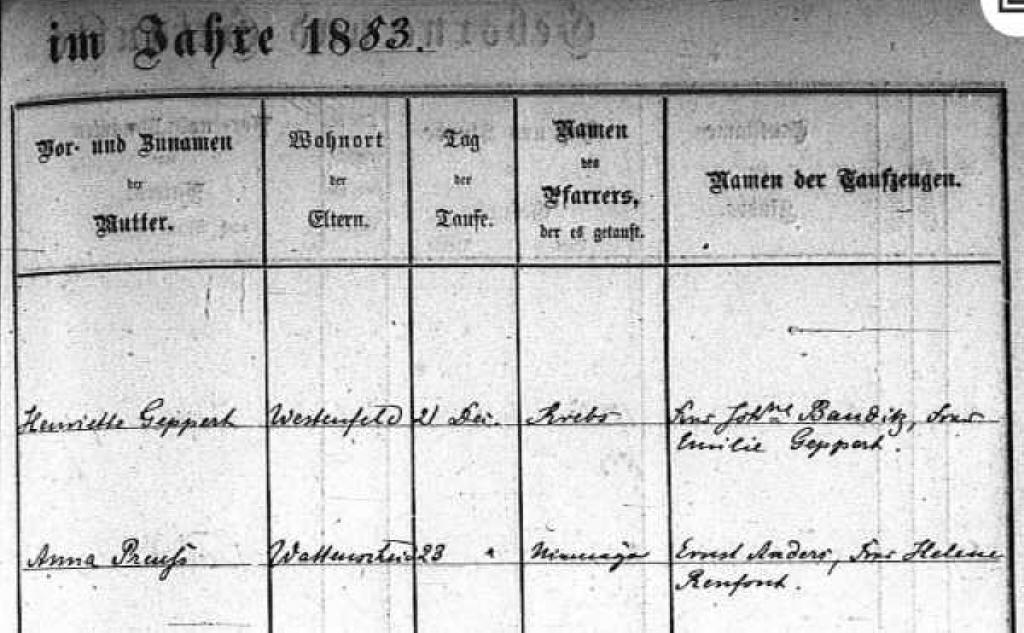 im Jahre 1883.
Vor- und Zunamen
der
Mutter.
Wohnort
der
Eltern.
Tag
der
Taufe.
Namen
des
Pfarrers,
der es getauft.
Namen der Taufzeugen.
Henriette Geppert Westenfeld 21 Dec. Krebs Frau Joh Banditz, Frau
Emilie Geppert.
Anna Preuß Wattenscheid 23 " Ernst Anders, Frau Helene
Renfont.